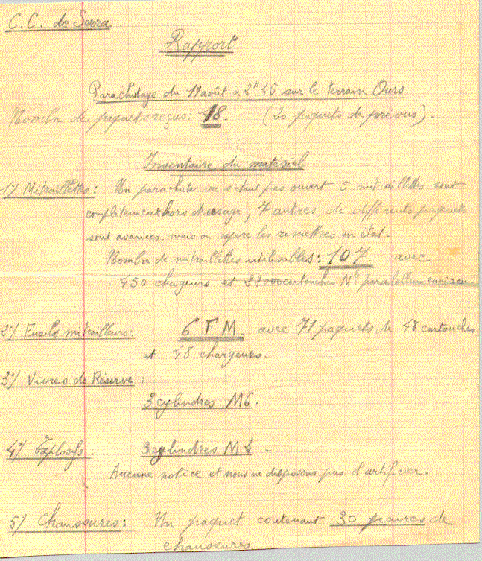 C.C. de Serra
Rapport
Parachutage du 11 août à 2h25 sur le terrain Ours
Nombre de paquets reçus: 18. (20 paquets de prévus).
Inventaire du matériel
1°/ Mitraillettes: Un parachute ne s'étant pas ouvert 5 mitraillettes sont
complètement hors d'usage, 7 autres de différents paquets
sont avariées, mais on espère les remettre en état.
Nombre de mitraillettes utilisables: 107 avec
450 chargeurs et cartouches parabellum environ
2°/ Fusils mitrailleurs: 6 F M avec 71 paquets de 48 cartouches
et chargeurs.
3°/ Vivres de Réserve:
3 cylindres M6.
4°/ Explosifs 3 cylindres M2.
Aucune notice et nous ne disposons pas d'artificier.
5°/ Chaussures: Un paquet contenant 30 paires de
chaussures